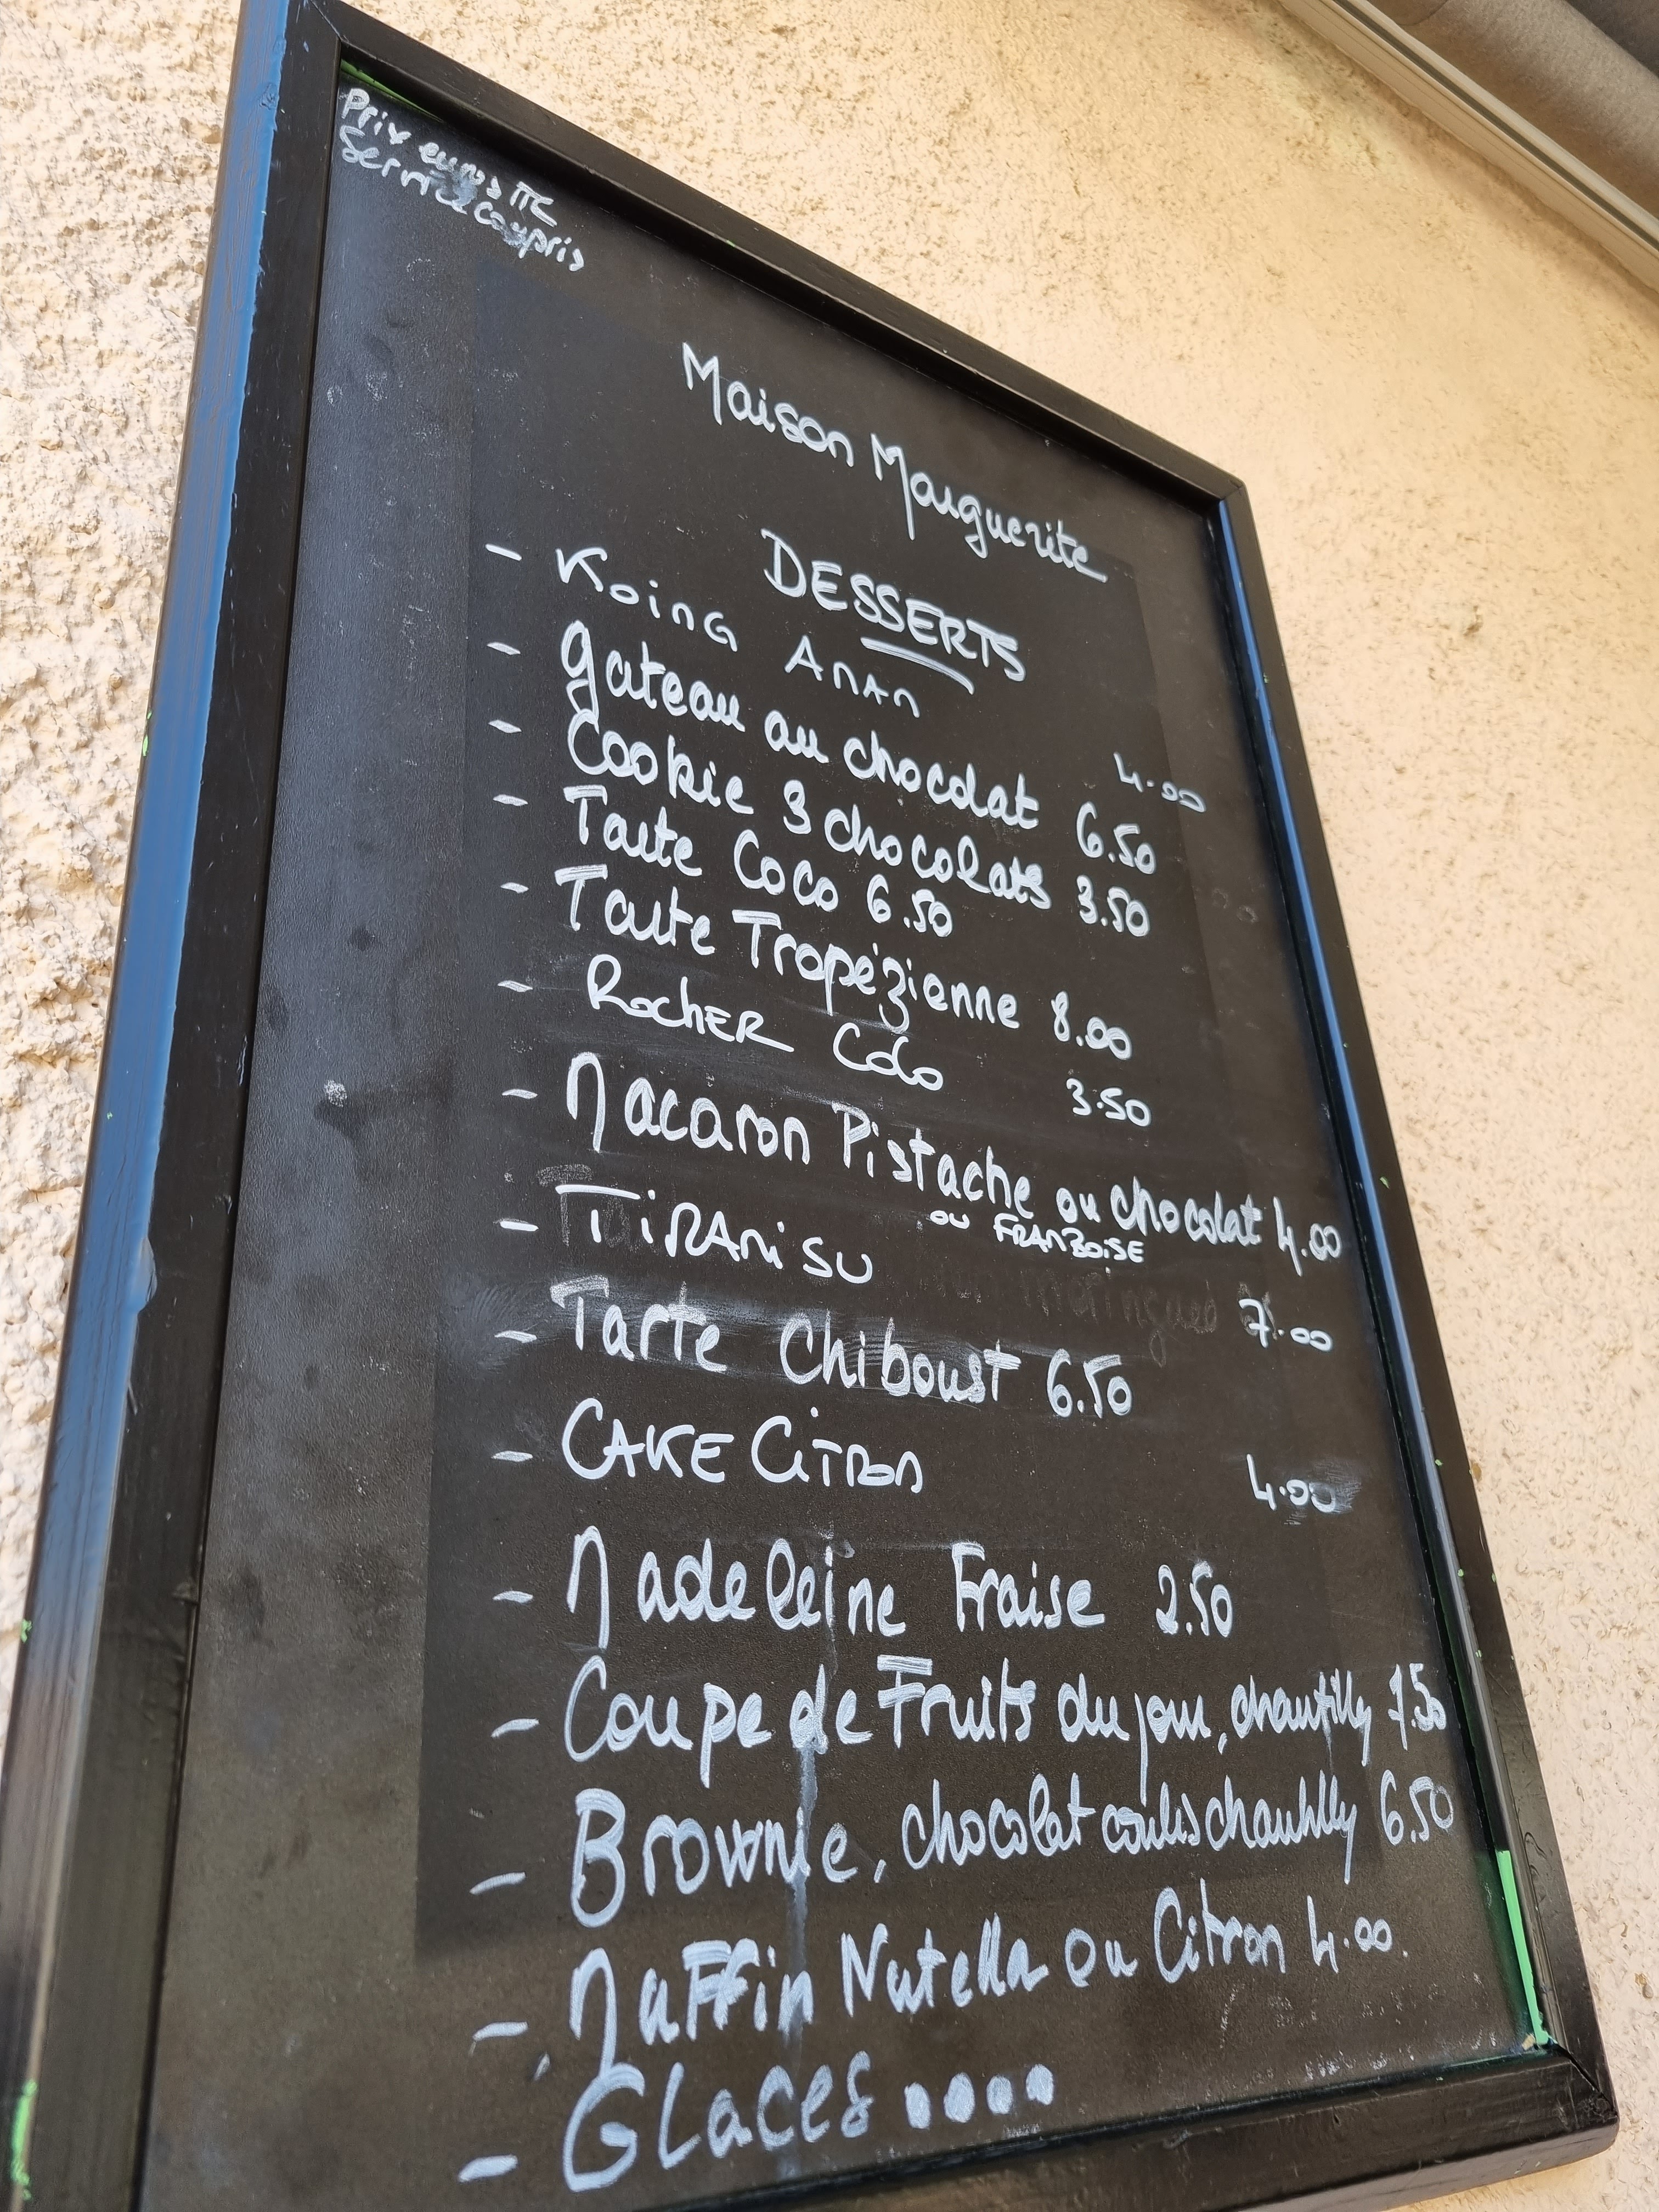 Prix euros TTC
Service compris
Maison Marguerite
DESSERTS
- KoinG AnAn 4.00
- gateau au chocolat 6.50
- Cookie 3 chocolats 3.50
- Tarte Coco 6.50
- Tarte Tropézienne 8.00
- RocHER CoCo 3.50
- Macaron Pistache ou chocolat 4.00
ou FRAMBOiSE
- TiRAMiSU 7.00
- Tarte Chiboust 6.50
- CAKE CiTRon 4.00
- Madeleine Fraise 2.50
- Coupe de Fruits du jour, chantilly 7.50
- Brownie, chocolat coulis chantilly 6.50
- Muffin Nutella ou Citron 4.00.
- GLaces ....